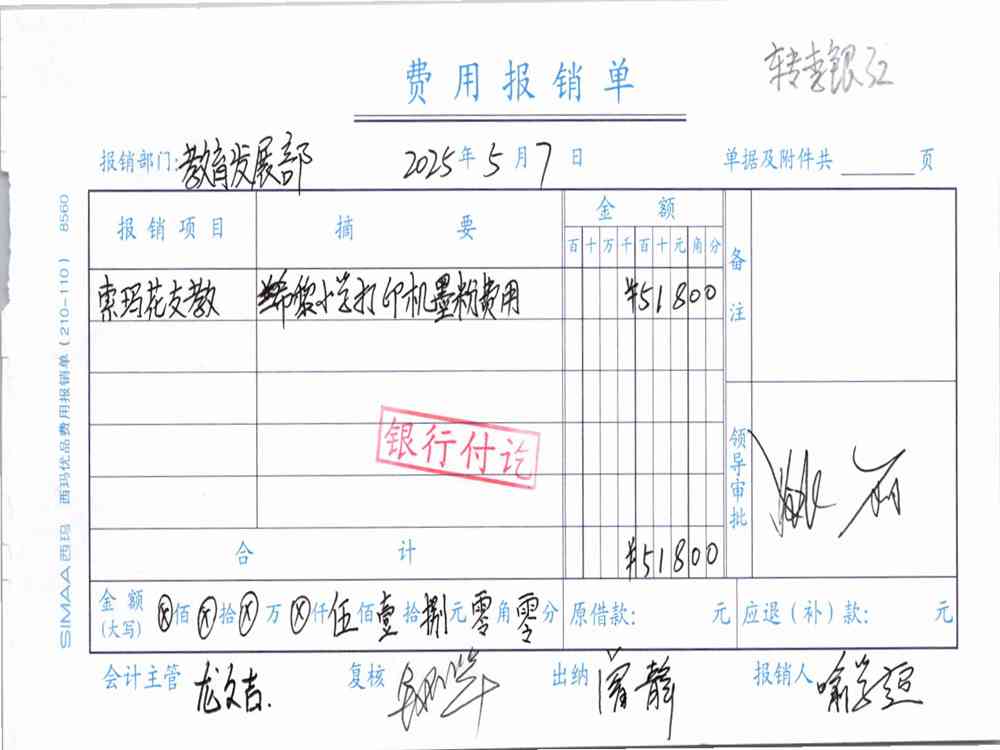 转李银江
费用报销单
报销部门:教育发展部 2025年5月7日 单据及附件共 页
报销项目 摘要 金额 备注
百十万千百十元角分
索玛花支教 希黎小学打印机墨粉费用 ¥51800
银行付讫
领导审批
合计 ¥51800
金额(大写) ⊗佰⊗拾⊗万⊗仟伍佰壹拾捌元零角零分 原借款: 元 应退(补)款: 元
会计主管 龙文吉 复核 出纳 静 报销人 喻学
SIMAA西玛 西玛优品费用报销单(210-110) 8560